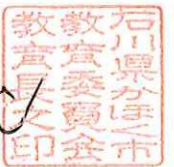 石川県かほく市
教育委員会
教育長之印